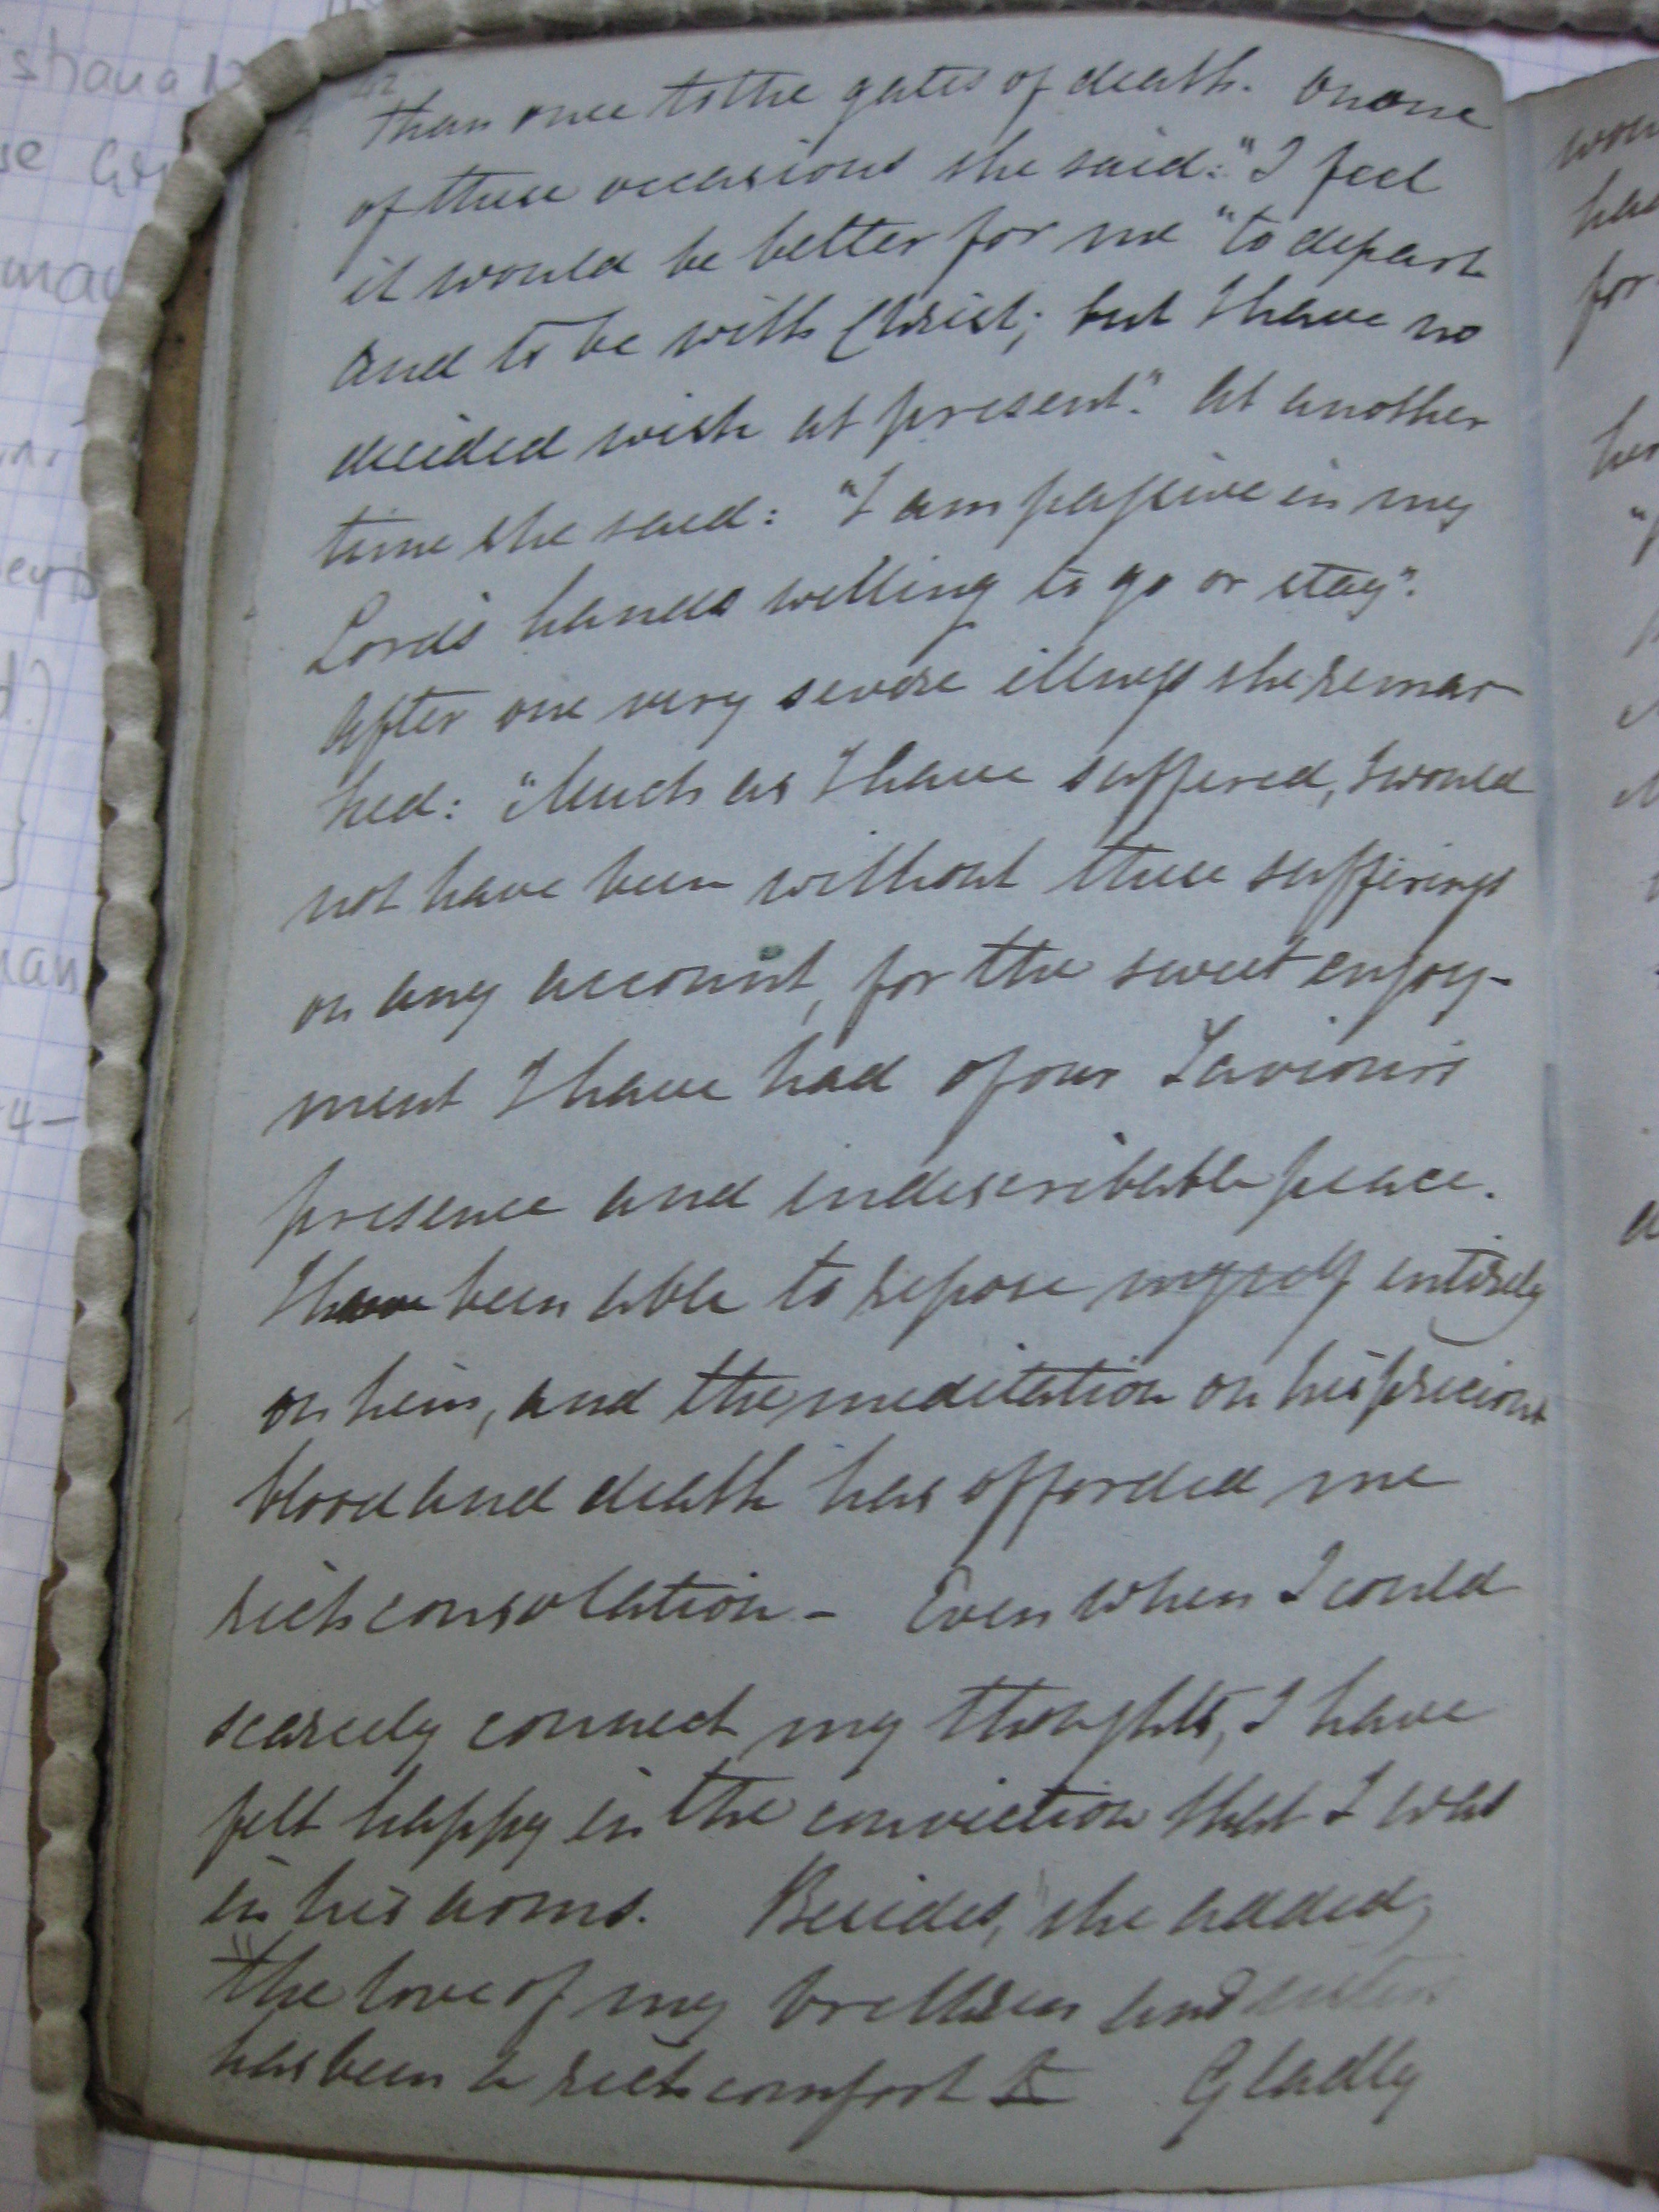 42
than once to the gates of death. On one
of these occasions she said: "I feel
it would be better for me "to depart
and to be with Christ; but I have no
decided wish at present." At another
time she said: "I am passive in my
Lord's hands willing to go or stay".
After one very severe illness she remar
ked: "Much as I have suffered, I would
not have been without these sufferings
on any account, for the sweet enjoy-
ment I have had of our Saviour's
presence and indescribable peace.
I have been able to repose myself entirely
on him, and the meditation on his precious
blood and death has afforded me
rich consolation - Even when I could
scarcely connect my thoughts, I have
felt happy in the conviction that I was
in his arms. Besides," she added,
"the love of my brethren and sisters
has been a rich comfort Gladly